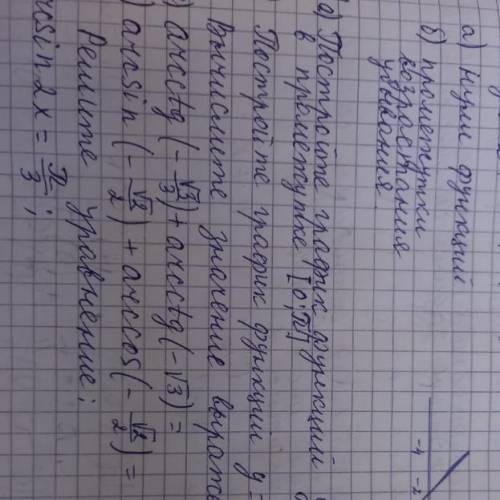 а) нули функций
б) промежутки
возрастания
убывания
а) Постройте график функций
в промежутке [0; π]
Постройте график функций y =
Вычислите значение выраж
arcctg (-√3/3) + arcctg (-√3) =
) arcsin (-√2/2) + arccos (-√2/2) =
Решите уравнение;
rcsin 2x = π/3;
-4